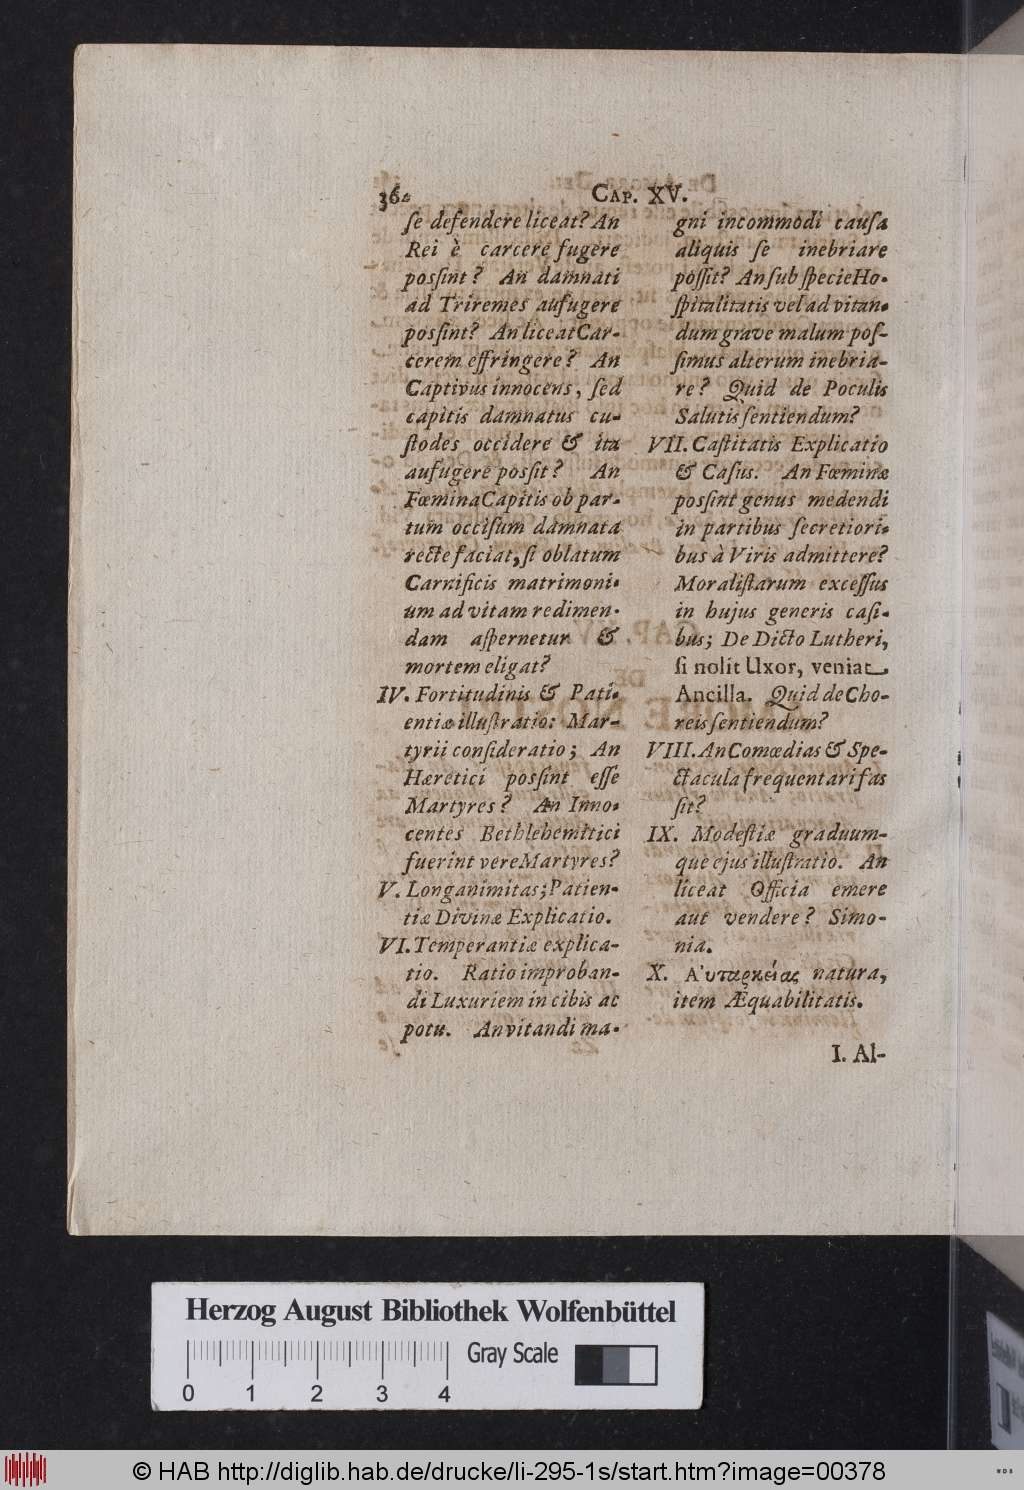 36
CAP. XV.
ſe defendere liceat? An
Rei è carcere fugere
poſſint? An damnati
ad Triremes aufugere
poſſint? An liceat Car-
cerem effringere? An
Captivus innocens, ſed
capitis damnatus cu-
ſtodes occidere & ita
aufugere poſſit? An
Fœmina Capitis ob par-
tum occiſum damnata
recte faciat, ſi oblatum
Carnificis matrimoni-
um ad vitam redimen-
dam aſpernetur &
mortem eligat?
IV. Fortitudinis & Pati-
entiæ illuſtratio: Mar-
tyrii conſideratio; An
Hæretici poſſint eſſe
Martyres? An Inno-
centes Bethlehemitici
fuerint vere Martyres?
V. Longanimitas; Patien-
tiæ Divinæ Explicatio.
VI. Temperantiæ explica-
tio. Ratio improban-
di Luxuriem in cibis ac
potu. An vitandi ma-
gni incommodi cauſa
aliquis ſe inebriare
poſſit? An ſub ſpecie Ho-
ſpitalitatis vel ad vitan-
dum grave malum poſ-
ſimus alterum inebria-
re? Quid de Poculis
Salutis ſentiendum?
VII. Caſtitatis Explicatio
& Caſus. An Fœminæ
poſſint genus medendi
in partibus ſecretiori-
bus à Viris admittere?
Moraliſtarum exceſſus
in hujus generis caſi-
bus; De Dicto Lutheri,
ſi nolit Uxor, veniat
Ancilla. Quid de Cho-
reis ſentiendum?
VIII. An Comœdias & Spe-
ctacula frequentari fas
ſit?
IX. Modeſtiæ graduum-
que ejus illuſtratio. An
liceat Officia emere
aut vendere? Simo-
nia.
X. Αὐταρκείας natura,
item Æquabilitatis.
I. Al-
Herzog August Bibliothek Wolfenbüttel
Gray Scale
0 1 2 3 4
© HAB http://diglib.hab.de/drucke/li-295-1s/start.htm?image=00378